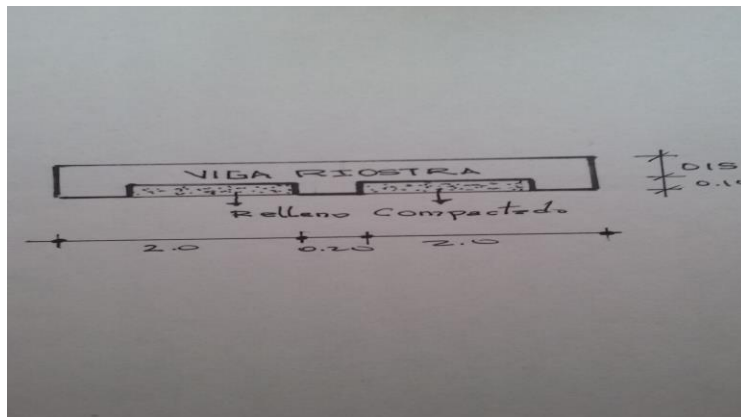 VIGA RIOSTRA
Relleno Compactado
2.0
0.20
2.0